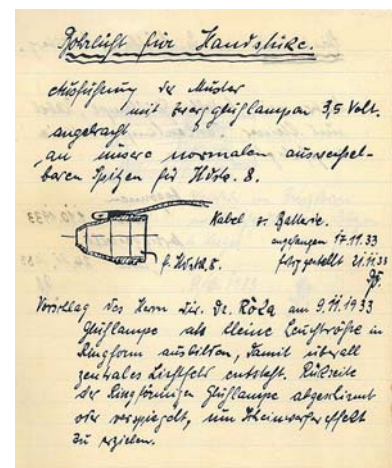 Bohrlicht für Handstüke.
Ausführung der Muster
mit Zwergglühlampen 3,5 Volt.
angebracht
an unsere normalen auswechsel-
baren Spitzen für Hdstk. 8.
Kabel z. Batterie.
angefangen 17.11.33
fertiggestellt 21.11.33
f. Hdstk. 8.
Vorschlag des Herrn Dir. Dr. Röda am 9.11.1933
Glühlampe als kleine Leuchtröhre in
Ringform ausbilden, damit überall
zentrales Lichtfeld entsteht. Rükseite
der Ringförmigen Glühlampe abgeschirmt
oder verspiegelt, um Scheinwerfereffekt
zu erzielen.